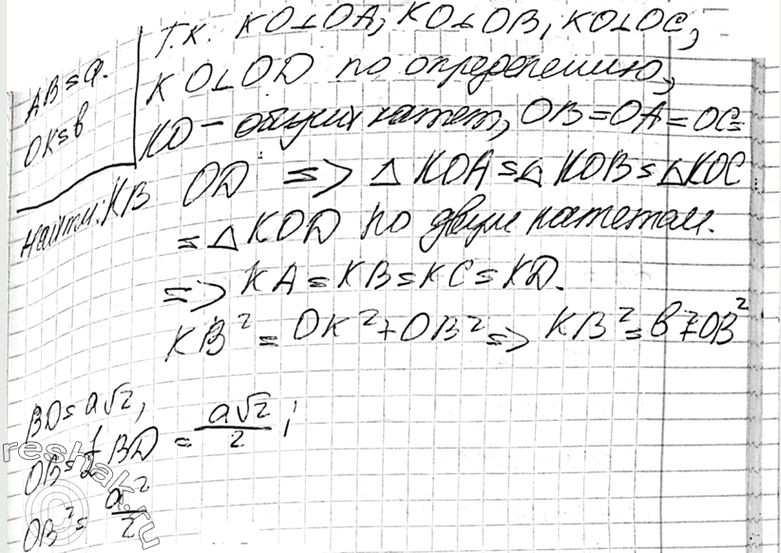 AB = a.
OK = b
Найти: KB
Т.к. KO⊥OA, KO⊥OB, KO⊥OC,
KO⊥OD по определению,
KO – общий катет, OB = OA = OC =
OD => △KOA = △KOB = △KOC
= △KOD по двум катетам.
=> KA = KB = KC = KD.
KB² = OK² + OB² => KB² = b² + OB²
BD = a√2,
OB = 1/2 BD = a√2/2 ;
OB² = a²/2
reshak.ru